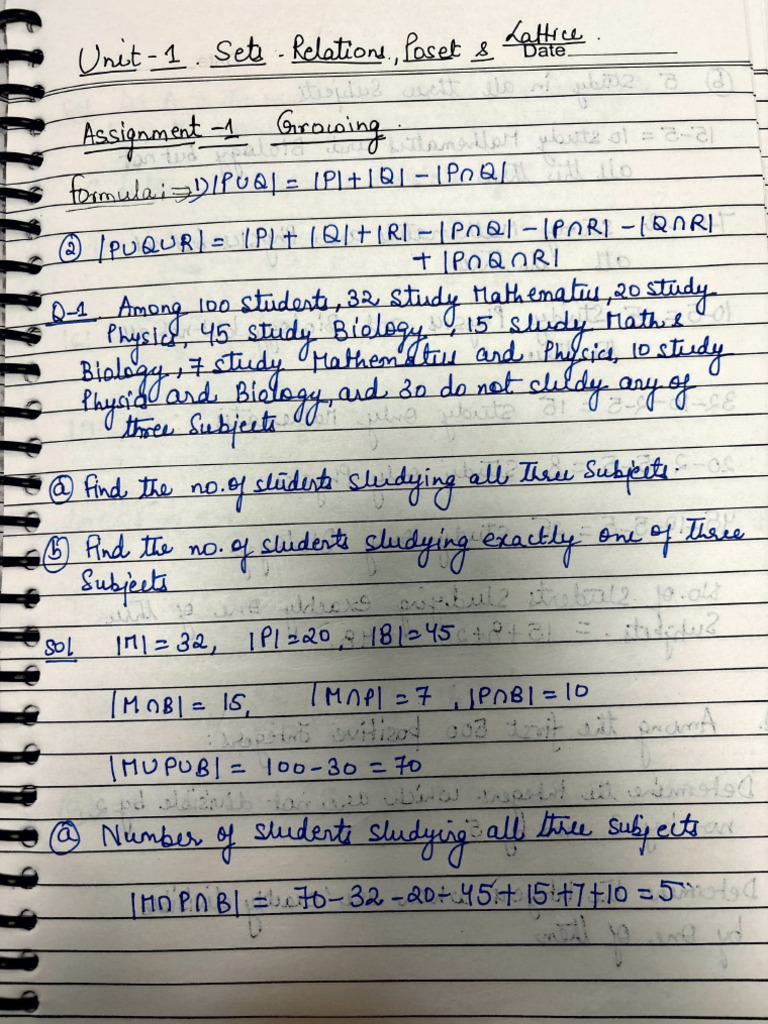 Unit-1. Sets. Relations, Poset & Lattice.
Date
Assignment-1 Growing.
formula:⇒ 1) |P∪Q| = |P|+|Q| - |P∩Q|
② |P∪Q∪R| = |P| + |Q|+|R| - |P∩Q| - |P∩R| - |Q∩R|
+ |P∩Q∩R|
Q-1. Among 100 students, 32 study Mathematics, 20 study
Physics, 45 study Biology, 15 study Math &
Biology, 7 study Mathematics and Physics, 10 study
Physics and Biology, and 30 do not study any of
three Subjects
ⓐ Find the no. of students studying all three Subjects.
ⓑ Find the no. of students studying exactly one of three
Subjects
Sol |M| = 32, |P| = 20, |B| = 45
|M∩B| = 15, |M∩P| = 7, |P∩B| = 10
|M∪P∪B| = 100-30 = 70
ⓐ Number of students studying all three subjects
|M∩P∩B| = 70-32-20-45+15+7+10 = 5